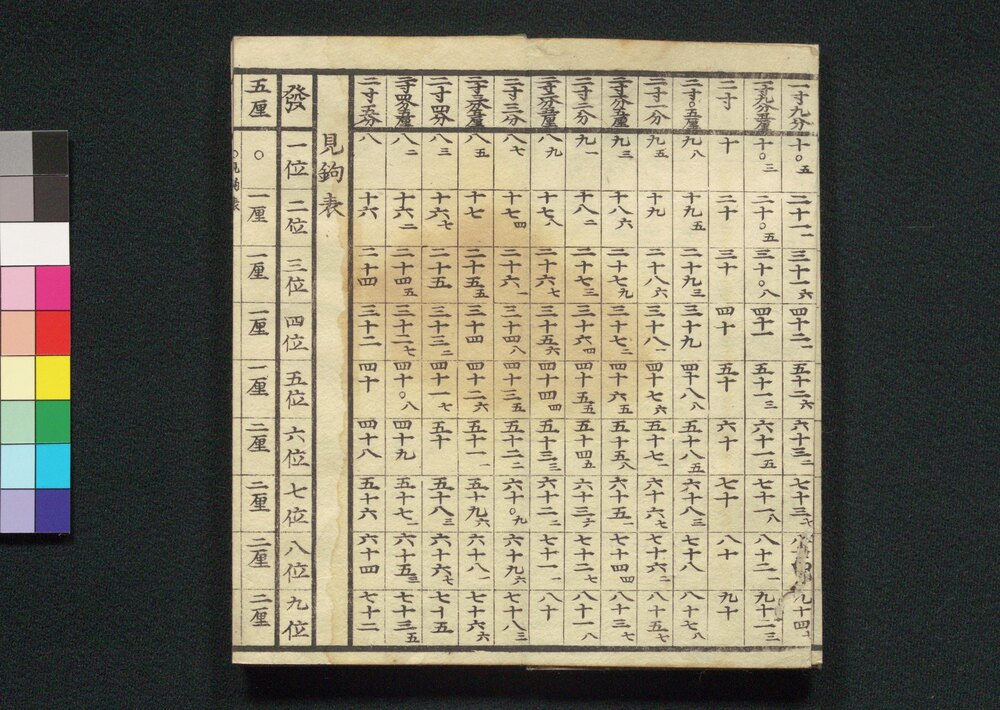 一寸九分 十〇五 二十一一 三十一六 四十二一 五十二六 六十三二 七十三七 九十四
一寸九分五厘 十〇三 二十〇五 三十〇八 四十一 五十一三 六十一五 七十一八 八十二一 九十二三
二寸 十 二十 三十 四十 五十 六十 七十 八十 九十
二寸〇五厘 九八 十九五 二十九三 三十九 四十八八 五十八五 六十八三 七十八 八十七八
二寸一分 九五 十九 二十八六 三十八一 四十七六 五十七一 六十六七 七十六二 八十五七
二寸一分五厘 九三 十八六 二十七九 三十七二 四十六五 五十五八 六十五一 七十四四 八十三七
二寸二分 九一 十八二 二十七三 三十六四 四十五五 五十四五 六十三六 七十二七 八十一八
二寸二分五厘 八九 十七八 二十六七 三十五六 四十四四 五十三三 六十二二 七十一一 八十
二寸三分 八七 十七四 二十六一 三十四八 四十三五 五十二二 六十〇九 六十九六 七十八三
二寸三分五厘 八五 十七 二十五五 三十四 四十二六 五十一一 五十九六 六十八一 七十六六
二寸四分 八三 十六七 二十五 三十三二 四十一七 五十 五十八三 六十六七 七十五
二寸四分五厘 八二 十六二 二十四五 三十二七 四十〇八 四十九 五十七一 六十五三 七十三五
二寸五分 八 十六 二十四 三十二 四十 四十八 五十六 六十四 七十二
見鉤表
發 一位 二位 三位 四位 五位 六位 七位 八位 九位
五厘 〇 一厘 一厘 一厘 一厘 二厘 二厘 二厘 二厘
〇見鉤表